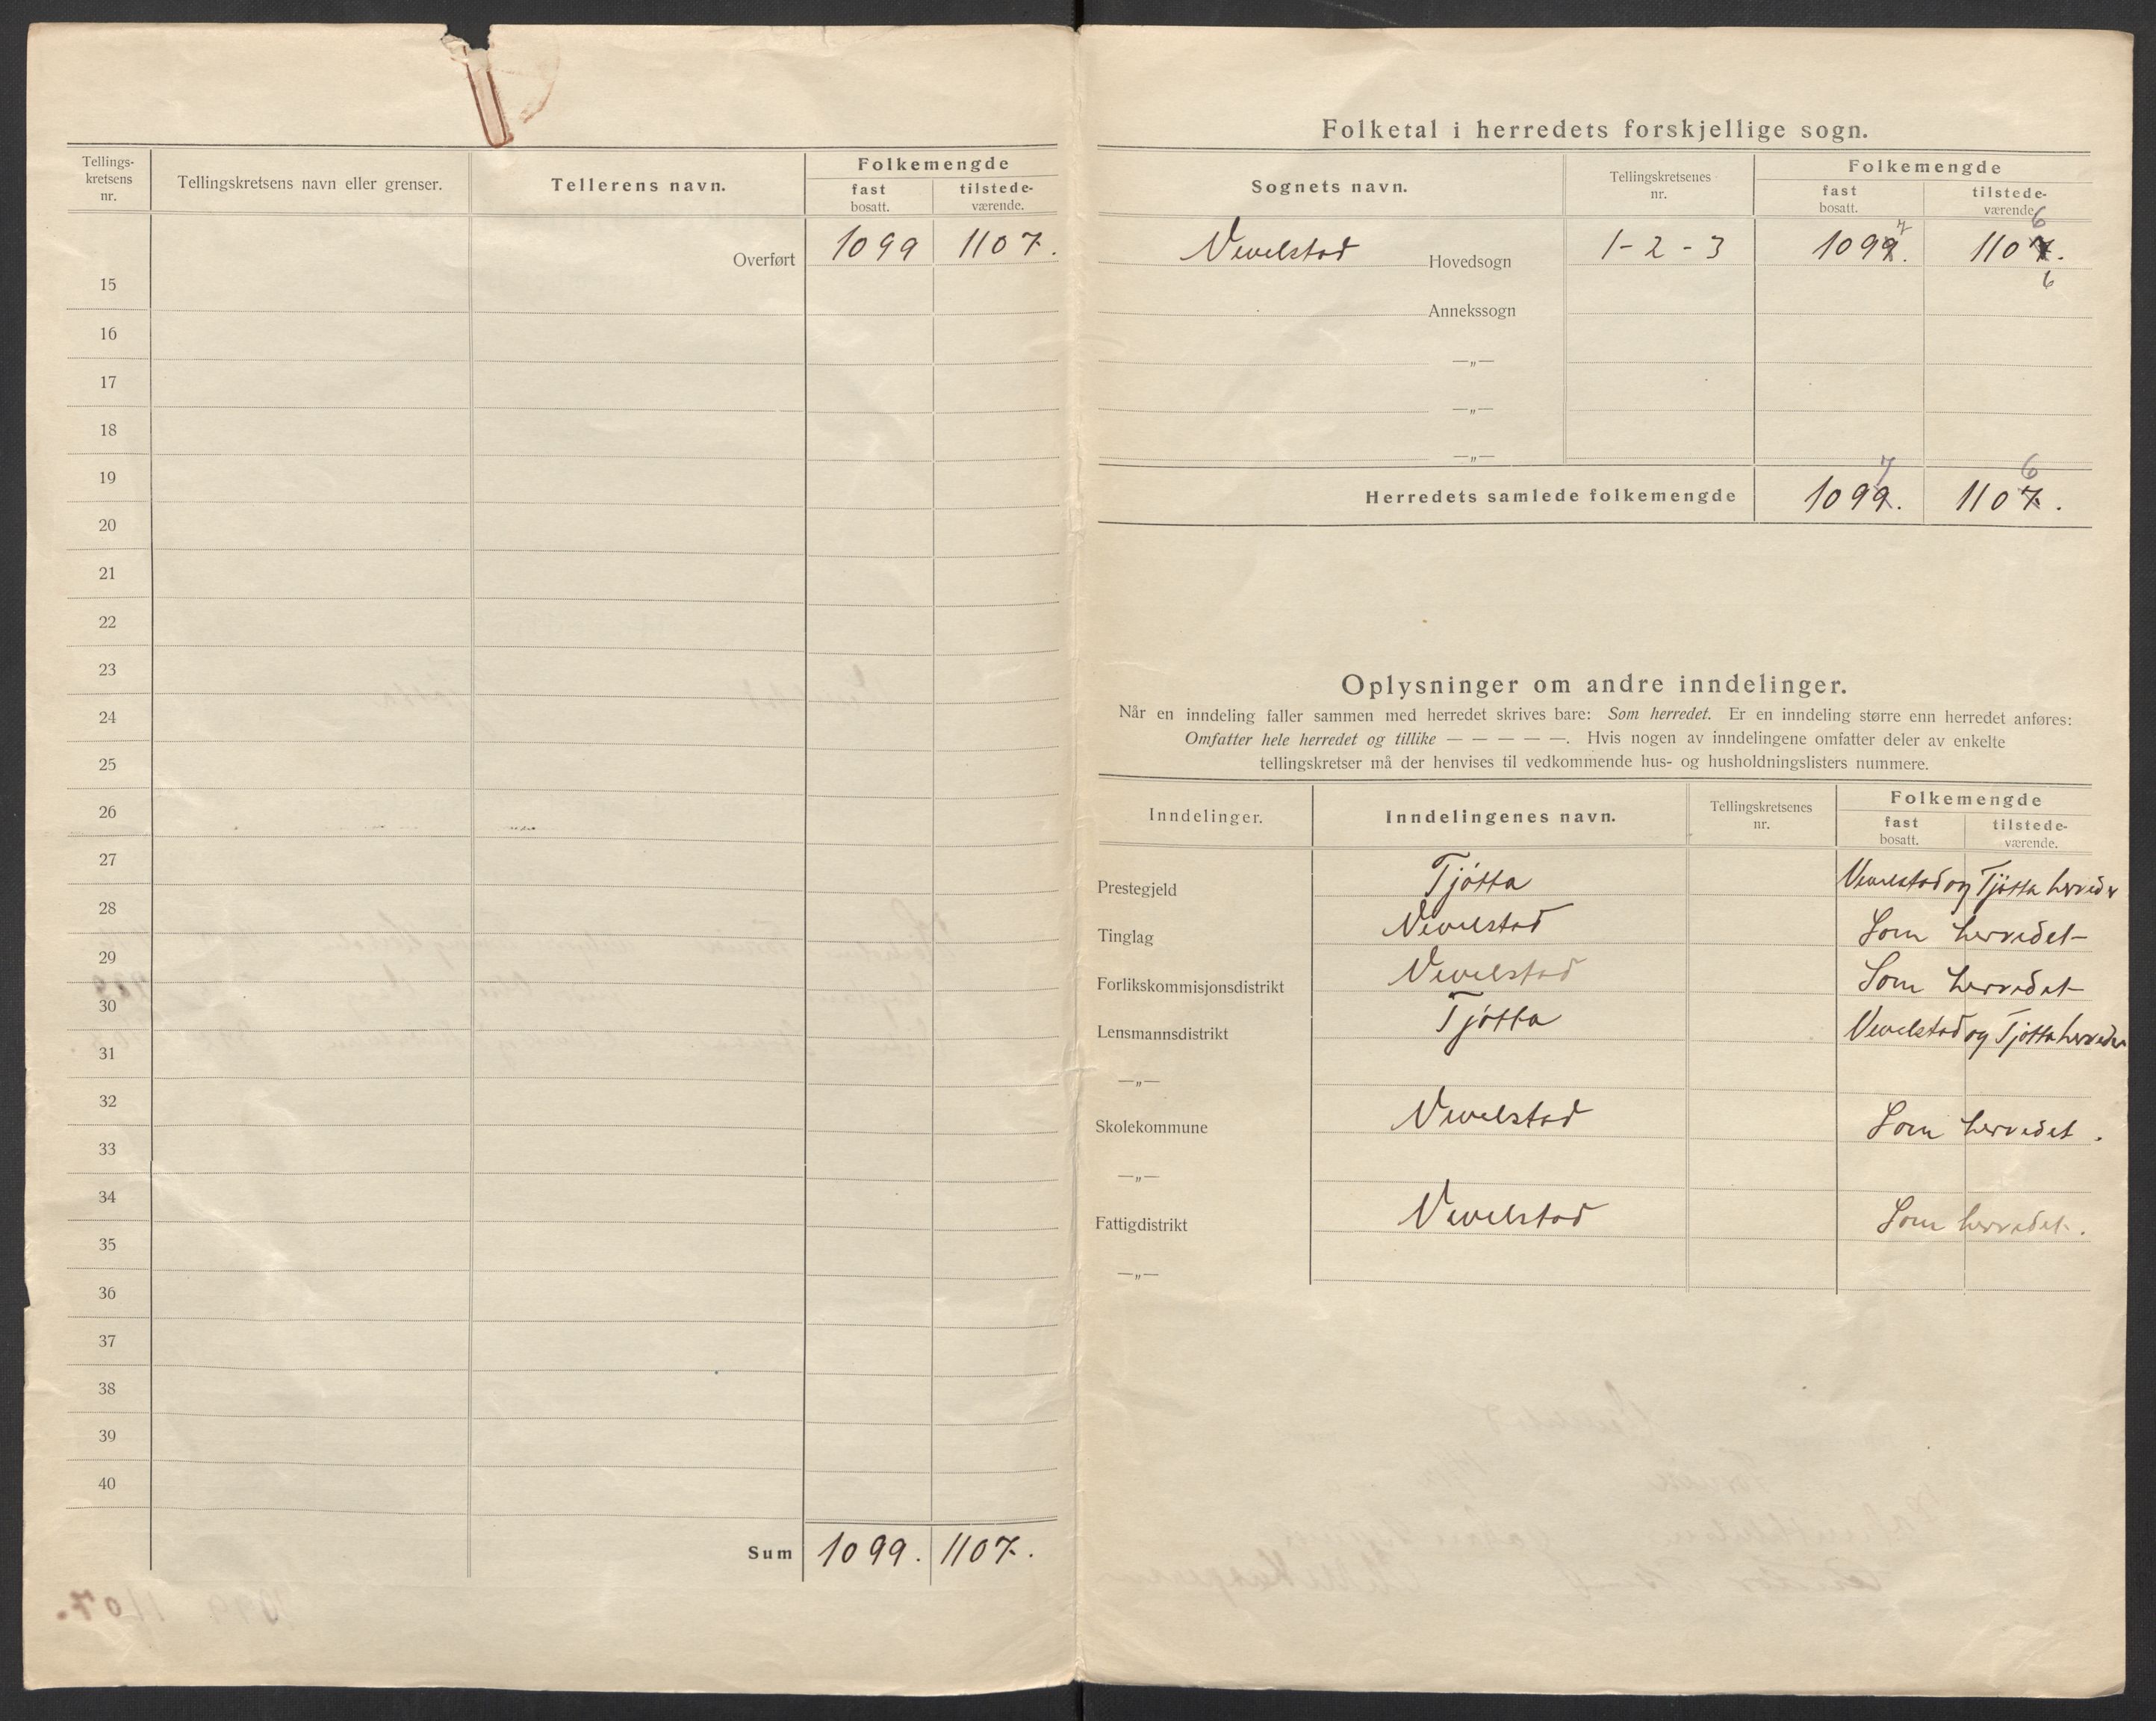 Tellings-
kretsens
nr.
Tellingskretsens navn eller grenser.
Tellerens navn.
Folkemengde
fast
bosatt.
tilstede-
værende.
Overført 1099 1107.
15
16
17
18
19
20
21
22
23
24
25
26
27
28
29
30
31
32
33
34
35
36
37
38
39
40
Sum 1099. 1107.
Folketal i herredets forskjellige sogn.
Sognets navn.
Tellingskretsenes
nr.
Folkemengde
fast
bosatt.
tilstede-
værende.
7 6
Vevelstad Hovedsogn 1-2-3 1099. 1107.
6
Annekssogn
—„—
—„—
—„—
7 6
Herredets samlede folkemengde 1099. 1107.
Oplysninger om andre inndelinger.
Når en inndeling faller sammen med herredet skrives bare: Som herredet. Er en inndeling større enn herredet anføres:
Omfatter hele herredet og tillike — — — — —. Hvis nogen av inndelingene omfatter deler av enkelte
tellingskretser må der henvises til vedkommende hus- og husholdningslisters nummere.
Inndelinger.
Inndelingenes navn.
Tellingskretsenes
nr.
Folkemengde
fast
bosatt.
tilstede-
værende.
Prestegjeld Tjøtta Vevelstad og Tjøtta herreder
Tinglag Vevelstad Som herredet
Forlikskommisjonsdistrikt Vevelstad Som herredet
Lensmannsdistrikt Tjøtta Vevelstad og Tjøtta herreder
—„—
Skolekommune Vevelstad Som herredet.
—„—
Fattigdistrikt Vevelstad Som herredet.
—„—